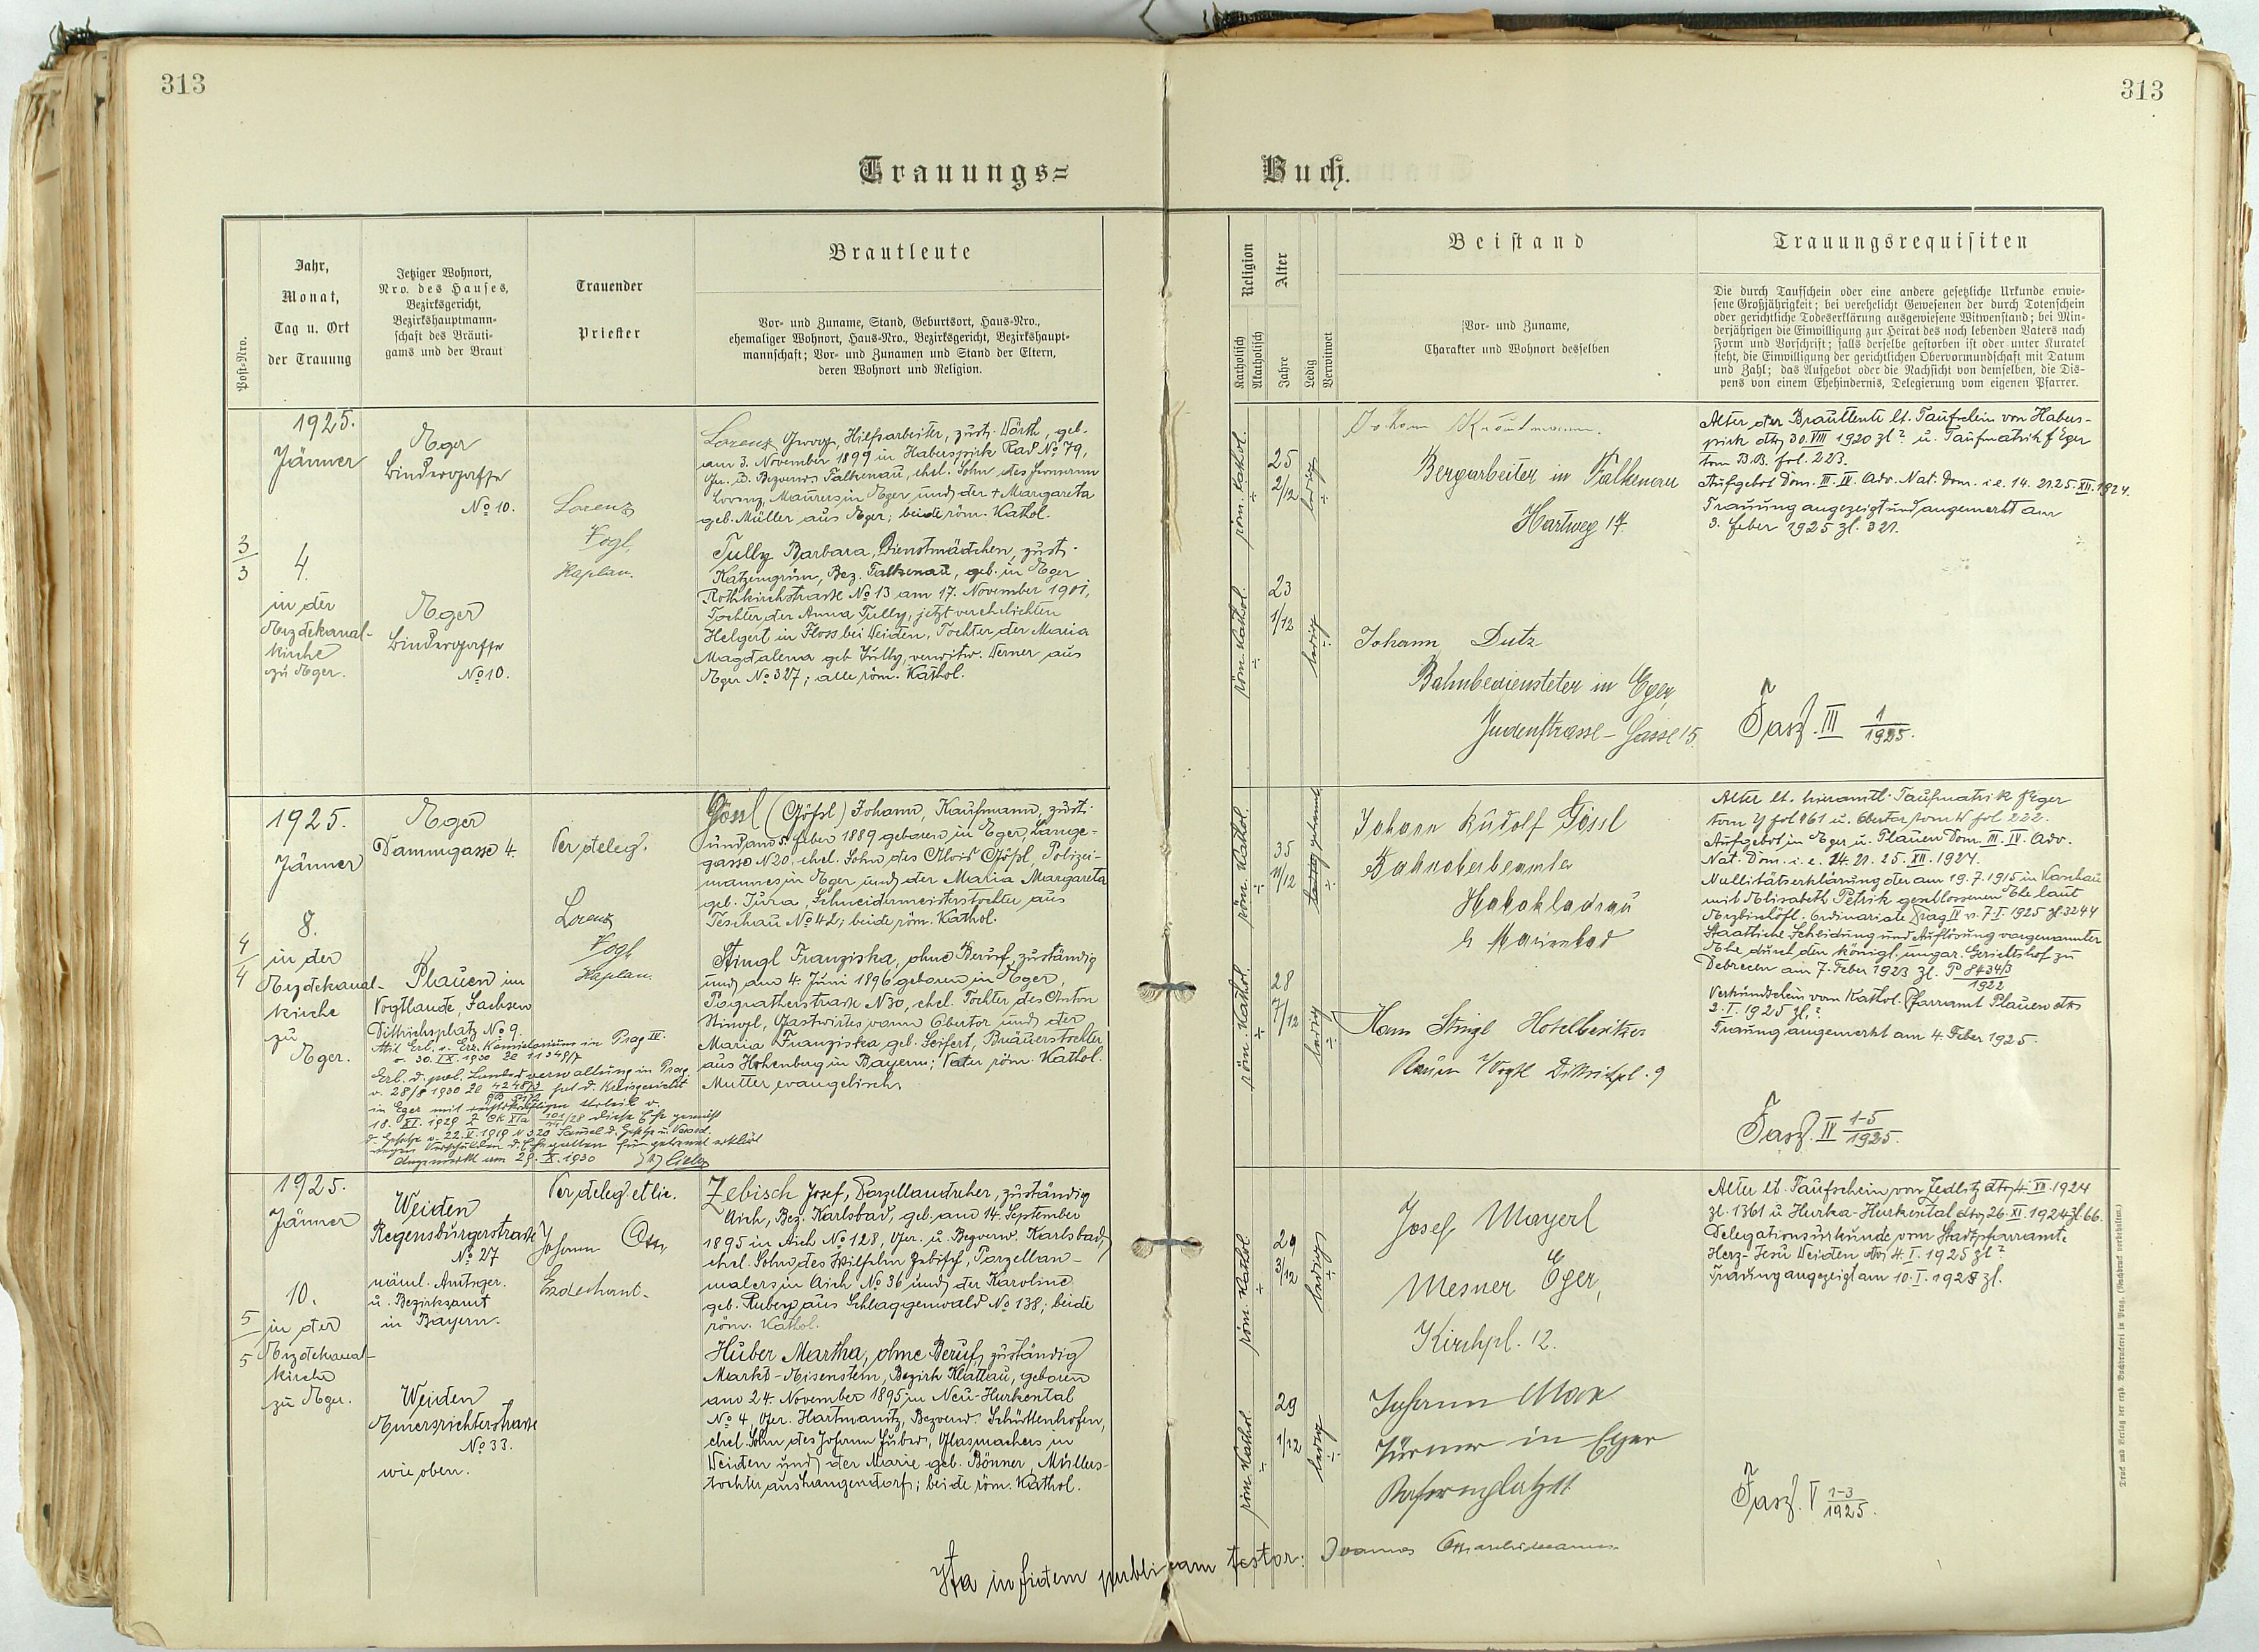 313
313
Trauungs=
Buch.
Post-Nro.
Jahr,
Monat,
Tag u. Ort
der Trauung
Jetziger Wohnort,
Nro. des Hauses,
Bezirksgericht,
Bezirkshauptmann-
schaft des Bräuti-
gams und der Braut
Trauender
Priester
Brautleute
Vor- und Zuname, Stand, Geburtsort, Haus-Nro.,
ehemaliger Wohnort, Haus-Nro., Bezirksgericht, Bezirkshaupt-
mannschaft; Vor- und Zunamen und Stand der Eltern,
deren Wohnort und Religion.
Religion
Katholisch
Akatholisch
Alter
Jahre
Ledig
Verwitwet
Beistand
Vor- und Zuname,
Charakter und Wohnort desselben
Trauungsrequisiten
Die durch Taufschein oder eine andere gesetzliche Urkunde erwie-
sene Großjährigkeit; bei verehelicht Gewesenen der durch Totenschein
oder gerichtliche Todeserklärung ausgewiesene Witwenstand; bei Min-
derjährigen die Einwilligung zur Heirat des noch lebenden Vaters nach
Form und Vorschrift; falls derselbe gestorben ist oder unter Kuratel
steht, die Einwilligung der gerichtlichen Obervormundschaft mit Datum
und Zahl; das Aufgebot oder die Nachsicht von demselben, die Dis-
pens von einem Ehehindernis, Delegierung vom eigenen Pfarrer.
3
3
1925.
Jänner
4.
in der
Erzdekanal-
kirche
zu Eger.
Eger
Bindergasse
No 10.
Eger
Bindergasse
No 10.
Lorenz
Vogl,
Kaplan.
Lorenz Georg, Hilfsarbeiter, zust. Wörth, geb.
am 3. November 1899 in Haberspirk Rad No 79,
Ger. u. Bezverw. Falkenau, ehel. Sohn des Hermann
Lorenz, Maurers in Eger und der + Margareta
geb. Müller aus Eger; beide röm. Kathol.
Tully Barbara, Dienstmädchen, zust.
Katzengrün, Bez. Falkenau, geb. in Eger
Rothkirchstrasse No 13 am 17. November 1901,
Tochter der Anna Tully, jetzt verehelichten
Helgert in Floss bei Weiden, Tochter der Maria
Magdalena geb. Tully, verwitw. Werner aus
Eger No 327; alle röm. Kathol.
röm. Kathol.
25
2/12
ledig
röm. Kathol.
23
1/12
ledig
Johann
Bergarbeiter in Falkenau
Hartweg 17
Johann Dutz
Bahnbediensteter in Eger,
Judenstrasse-Gasse 15
Alter der Brautleute lt. Taufschein von Habers-
pirk dto 30. VIII 1920 zl ? u. Taufmatrik f Eger
tom B.B. fol. 223.
Aufgebot Dom. III. IV. Adv. Nat. Dom. i. e. 14. 21. 25. XII. 1924.
Trauung angezeigt und angemerkt am
3. Feber 1925 zl. 321.
Fasz. III 1/1925.
4
4
1925.
Jänner
8.
in der
Erzdekanal-
kirche
zu
Eger.
Eger
Dammgasse 4.
Plauen im
Vogtlande, Sachsen
Dittrichsplatz No 9.
Per deleg.
Lorenz
Vogl,
Kaplan.
Gössl (Gößl) Johann, Kaufmann, zust.
und am 5. Feber 1889 geboren in Eger, Lange-
gasse N 20, ehel. Sohn des Alois Gößl, Polizei-
mannes in Eger und der Maria Margareta
geb. Jura, Schneidermeisterstochter aus
Teschau No 42; beide röm. Kathol.
Stingl Franziska, ohne Beruf, zuständig
und am 4. Juni 1896 geboren in Eger,
Pograthertrasse N 30, ehel. Tochter des Anton
Stingl, Gastwirtes vorm Obertor und der
Maria Franziska geb. Seifert, Bräuerstochter
aus Hohenberg in Bayern; Vater röm. Kathol.
Mutter evangelisch.
in Prag IV.
v. 30. IX. 1930 zl 11349/7
Erl. d. pol. Landesverwaltung in Prag
v. 28/8 1930 zl
in Eger mit rechtskräftigem Urteil v.
18. XI. 1929
Angemerkt am 29. X. 1930
röm. Kathol.
35
11/12
röm. Kathol.
28
7/12
ledig
Johann Rudolf Gössl
Bahnoberbeamter
b Marienbad
Hans Stingl Hotelbesitzer
Plauen i/Vogtl Dittrichpl. 9
Alter lt. hieramtl. Taufmatrik f Eger
tom Y fol 161 u. Obertor tom W fol 222.
Aufgebot in Eger u. Plauen Dom. III. IV. Adv.
Nat. Dom. i. e. 14. 21. 25. XII. 1924.
Nullitätserklärung der am 19. 7. 1915 in Kaschau
mit Elisabeth Petrik geschlossenen Ehe laut
Erzbischöfl. Ordinariate Prag IV v. 7. I. 1925 zl. 3244
Staatliche Scheidung und Auflösung vorgenannter
Ehe durch den königl. ungar. Gerichtshof zu
Debrecen am 7. Feber 1923 zl. P 8434/3
1922
Verkündschein vom Kathol. Pfarramt Plauen dto
2. I. 1925 zl. ?
Trauung angemerkt am 4. Feber 1925.
Fasz. IV 1-5/1925.
5
5
1925.
Jänner
10.
in der
Erzdekanal-
kirche
zu Eger.
Weiden
Regensburgerstrasse
No 27
näml. Amtsger.
u. Bezirksamt
in Bayern.
Weiden
No 33.
wie oben.
Per deleg. et lic.
Johann Ott,
Erzdechant.
Zebisch Josef, Porzellandreher, zuständig
Aich, Bez. Karlsbad, geb. am 14. September
1895 in Aich No 128, Ger. u. Bezverw. Karlsbad,
ehel. Sohn des Wilhelm Zebisch, Porzellan-
malers in Aich No 36 und der Karoline
geb. Ruberg aus Schlaggenwald No 138; beide
röm. Kathol.
Huber Martha, ohne Beruf, zuständig
Markt-Eisenstein, Bezirk Klattau, geboren
am 24. November 1895 in Neu-Hurkental
No 4, Ger. Hartmanitz, Bezverw. Schüttenhofen,
ehel. Sohn des Johann Huber, Glasmachers in
Weiden und der Marie geb. Bönner, Müllers-
tochter aus Langendorf; beide röm. Kathol.
röm. Kathol
29
3/12
ledig
röm. Kathol.
29
1/12
ledig
Josef Mayerl
Mesner Eger,
Kirchpl. 12.
Johann Max
Türmer in Eger
Alter lt. Taufschein von Zedlitz dto 4. XII. 1924
zl. 1361 u. Hurka-Hurkental dto 26. XI. 1924 zl. 66.
Delegationsurkunde vom Stadtpfarramte
Herz-Jesu Weiden dto 4. I. 1925 zl. ?
Trauung angezeigt am 10. I. 1925 zl.
Fasz. V 1-3/1925.
Ita in fidem publicam testor: Joannes Ott archidecanus
Druck und Verlag der erzb. Buchdruckerei in Prag. (Nachdruck verboten.)